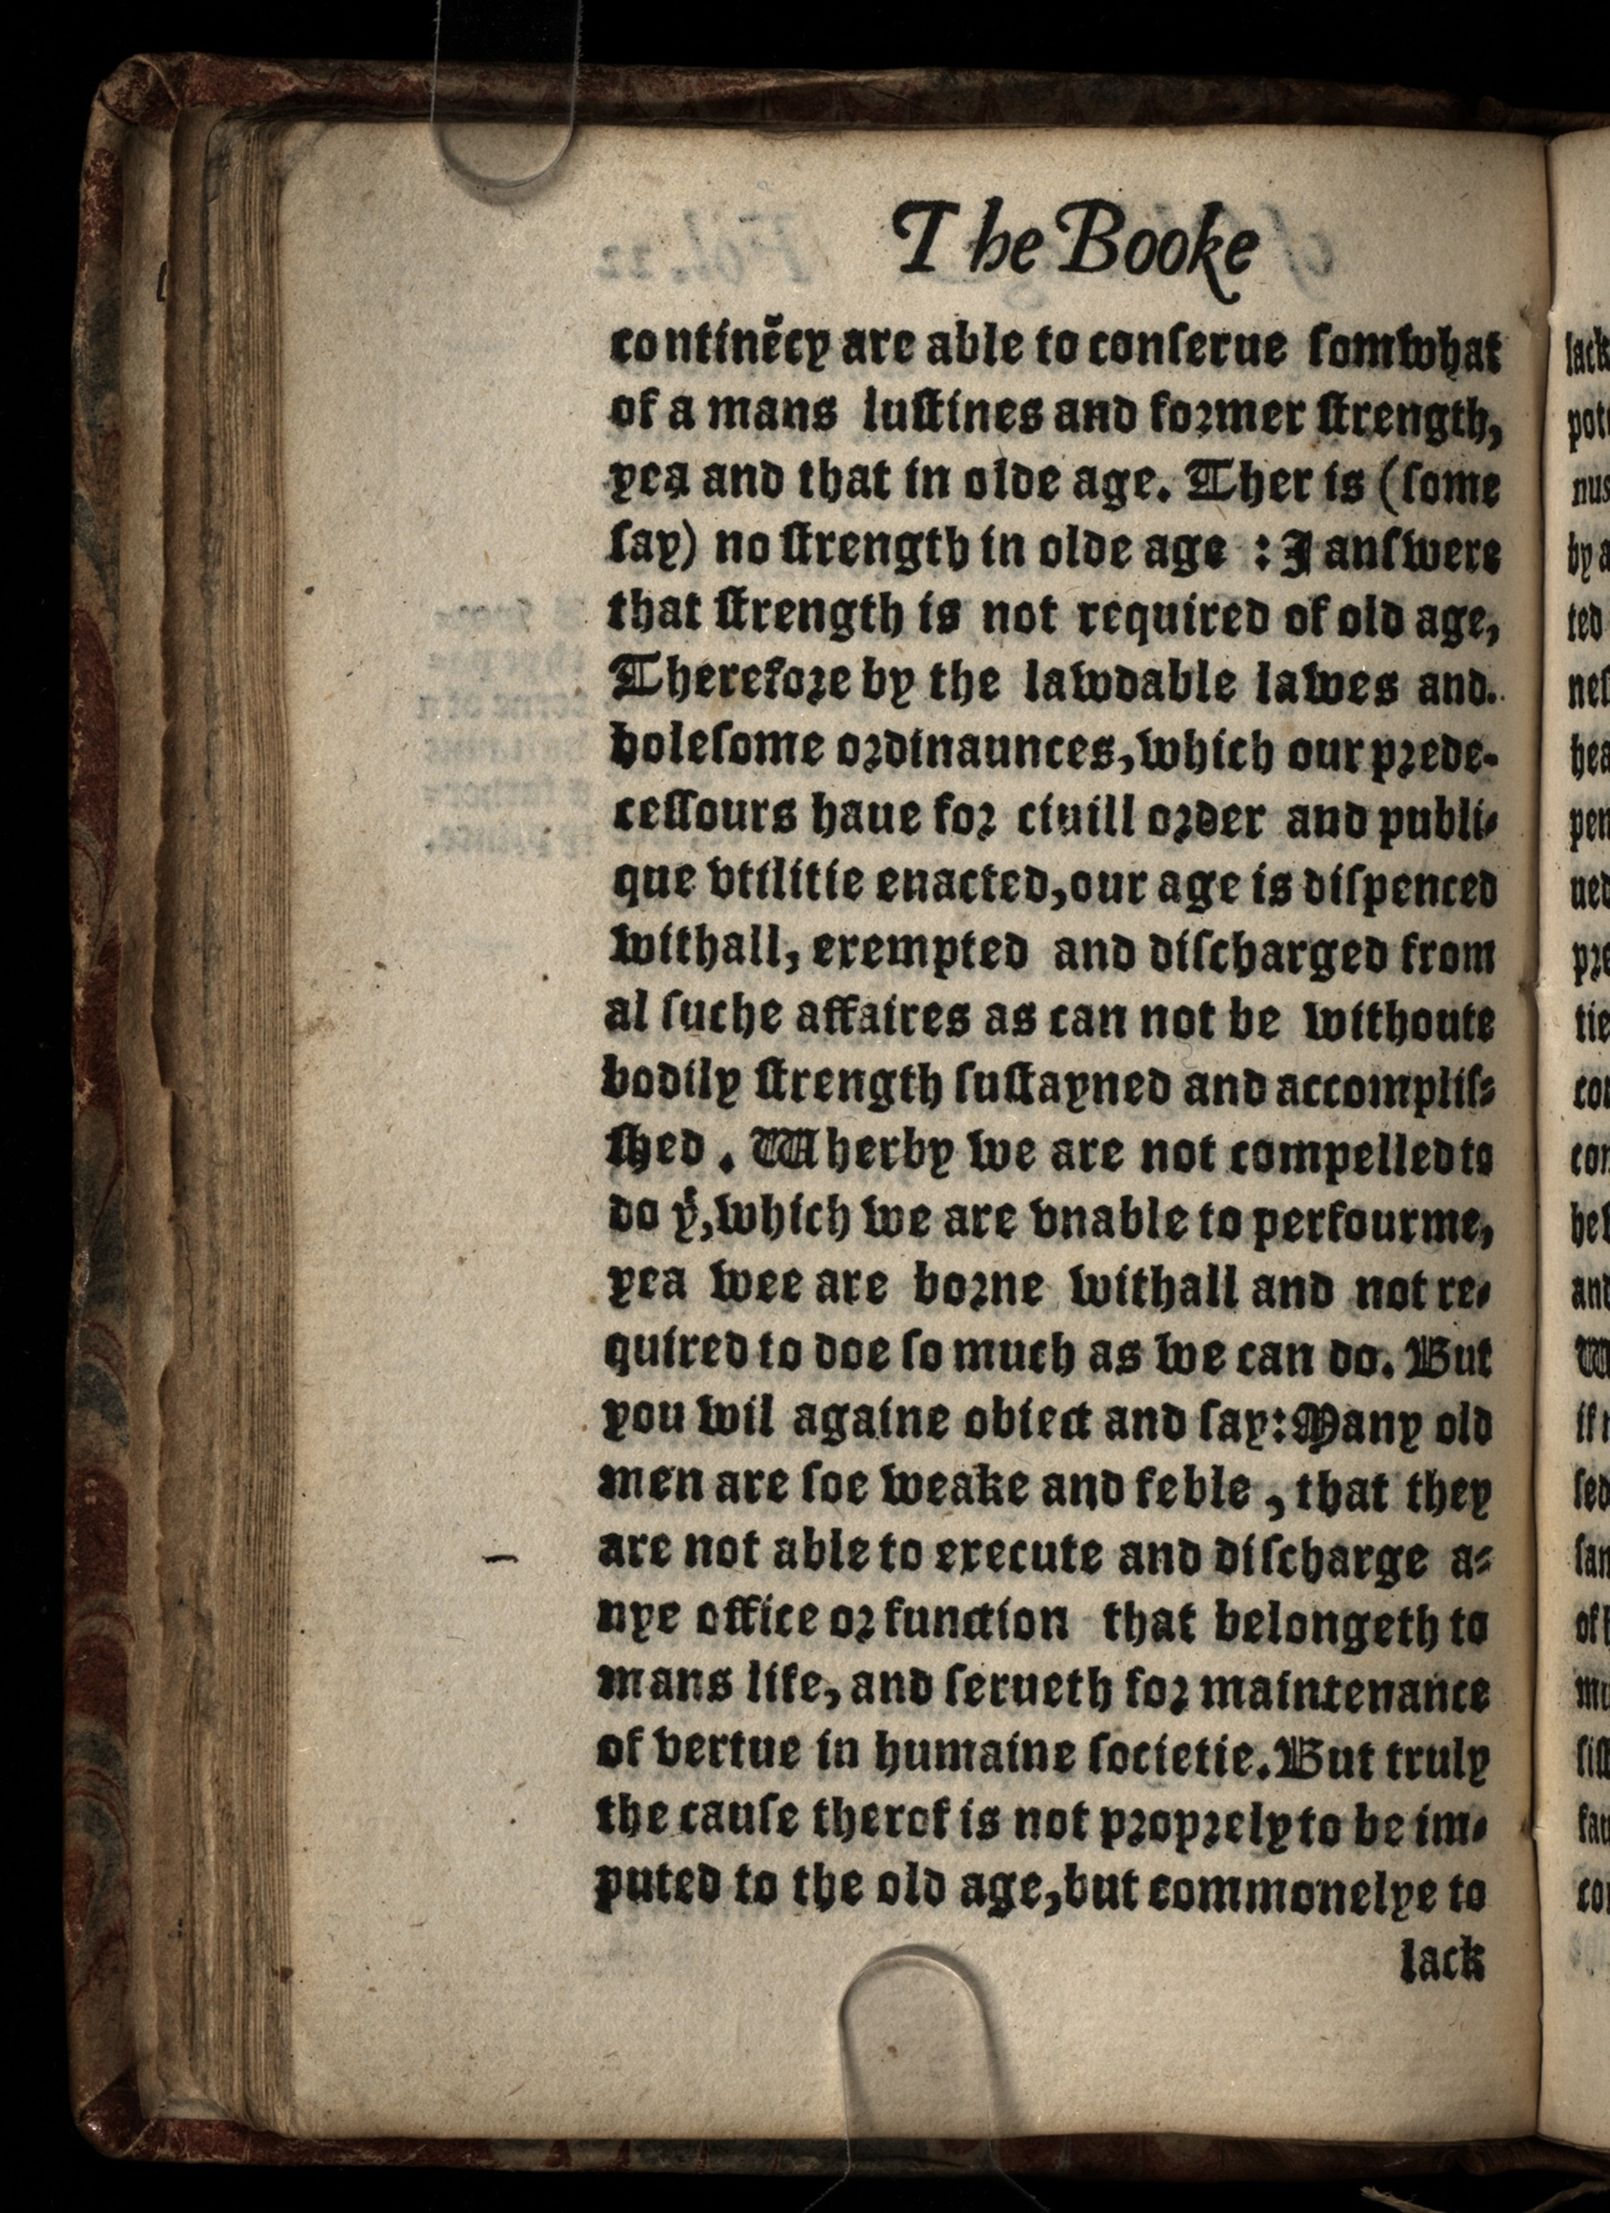 The Booke
continēcy are able to conſerue ſomwhat
of a mans luſtines and former ſtrength,
yea and that in olde age. Ther is (ſome
ſay) no ſtrength in olde age : I anſwere
that ſtrength is not required of old age,
Therefore by the lawdable lawes and.
holeſome ordinaunces, which our prede-
ceſſours haue for ciuill order and publi-
que vtilitie enacted, our age is diſpenced
withall, exempted and diſcharged from
al ſuche affaires as can not be withoute
bodily ſtrength ſuſtayned and accompliſ-
ſhed. Wherby we are not compelled to
do yͭ, which we are vnable to perfourme,
yea wee are borne withall and not re-
quired to doe ſo much as we can do. But
you wil againe obiect and ſay: Many old
men are ſoe weake and feble, that they
are not able to execute and diſcharge a-
nye office or function that belongeth to
mans life, and ſerueth for maintenance
of vertue in humaine ſocietie. But truly
the cauſe therof is not proprely to be im-
puted to the old age, but commonelye to
lack